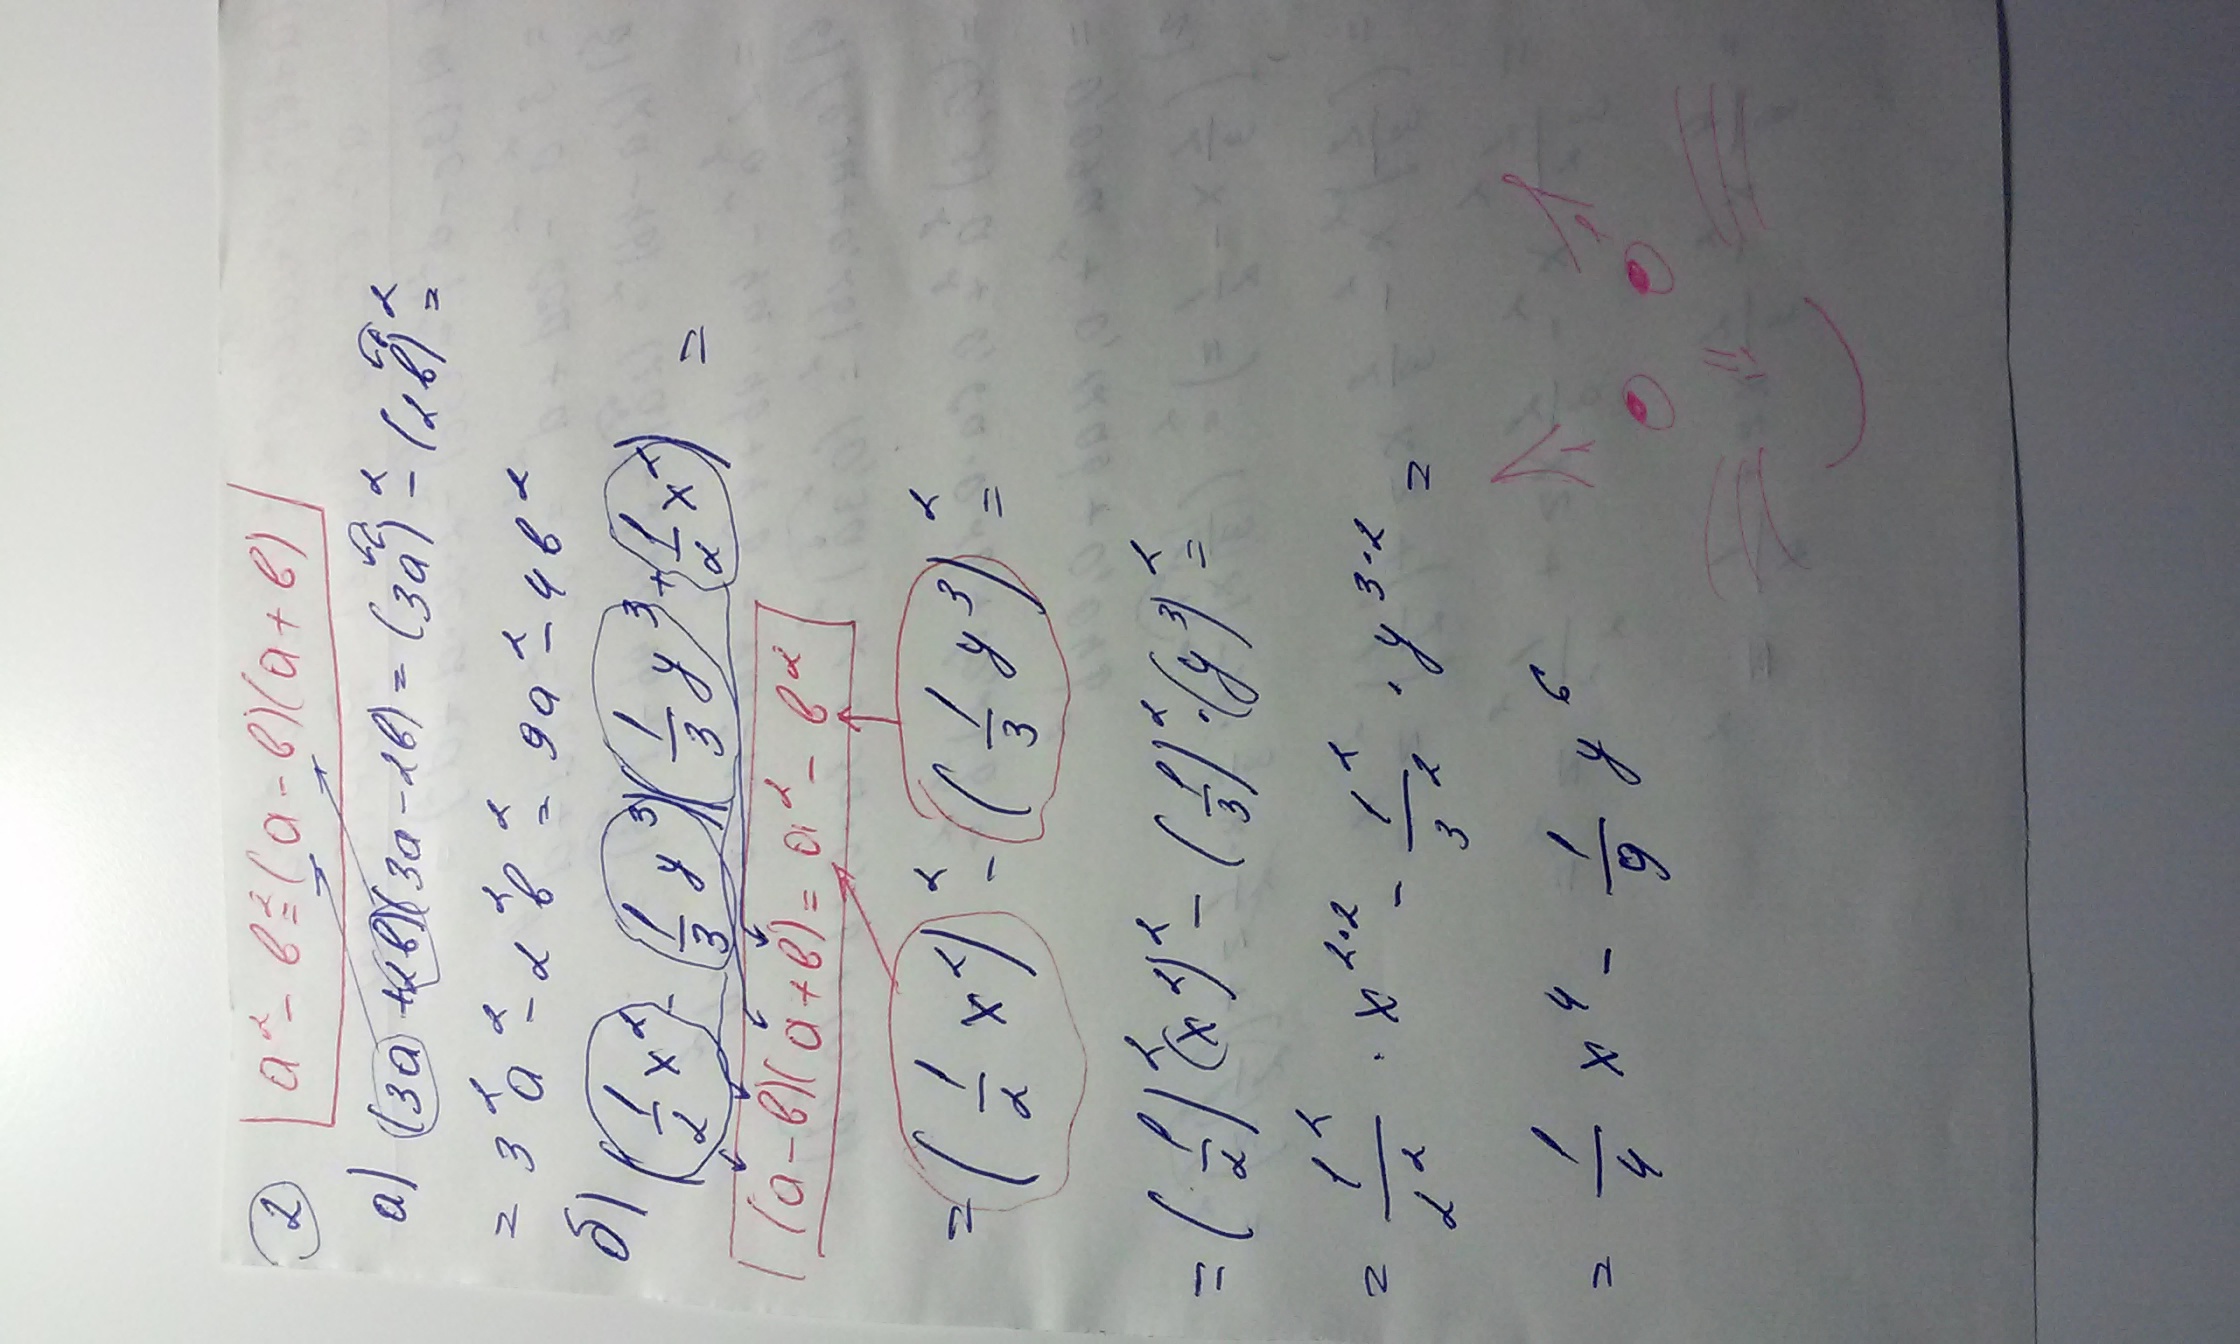 ② a² - в² = (a - в)(a + в)
а) (3a + 2в)(3a - 2в) = (3a)² - (2в)² =
= 3² a² - 2² в² = 9a² - 4в²
б) (1/2 x² - 1/3 y³)(1/3 y³ + 1/2 x²) =
(a - в)(a + в) = a² - в²
= (1/2 x²)² - (1/3 y³)² =
= (1/2)² (x²)² - (1/3)² · (y³)² =
= 1²/2² · x²·² - 1²/3² · y³·² =
= 1/4 x⁴ - 1/9 y⁶